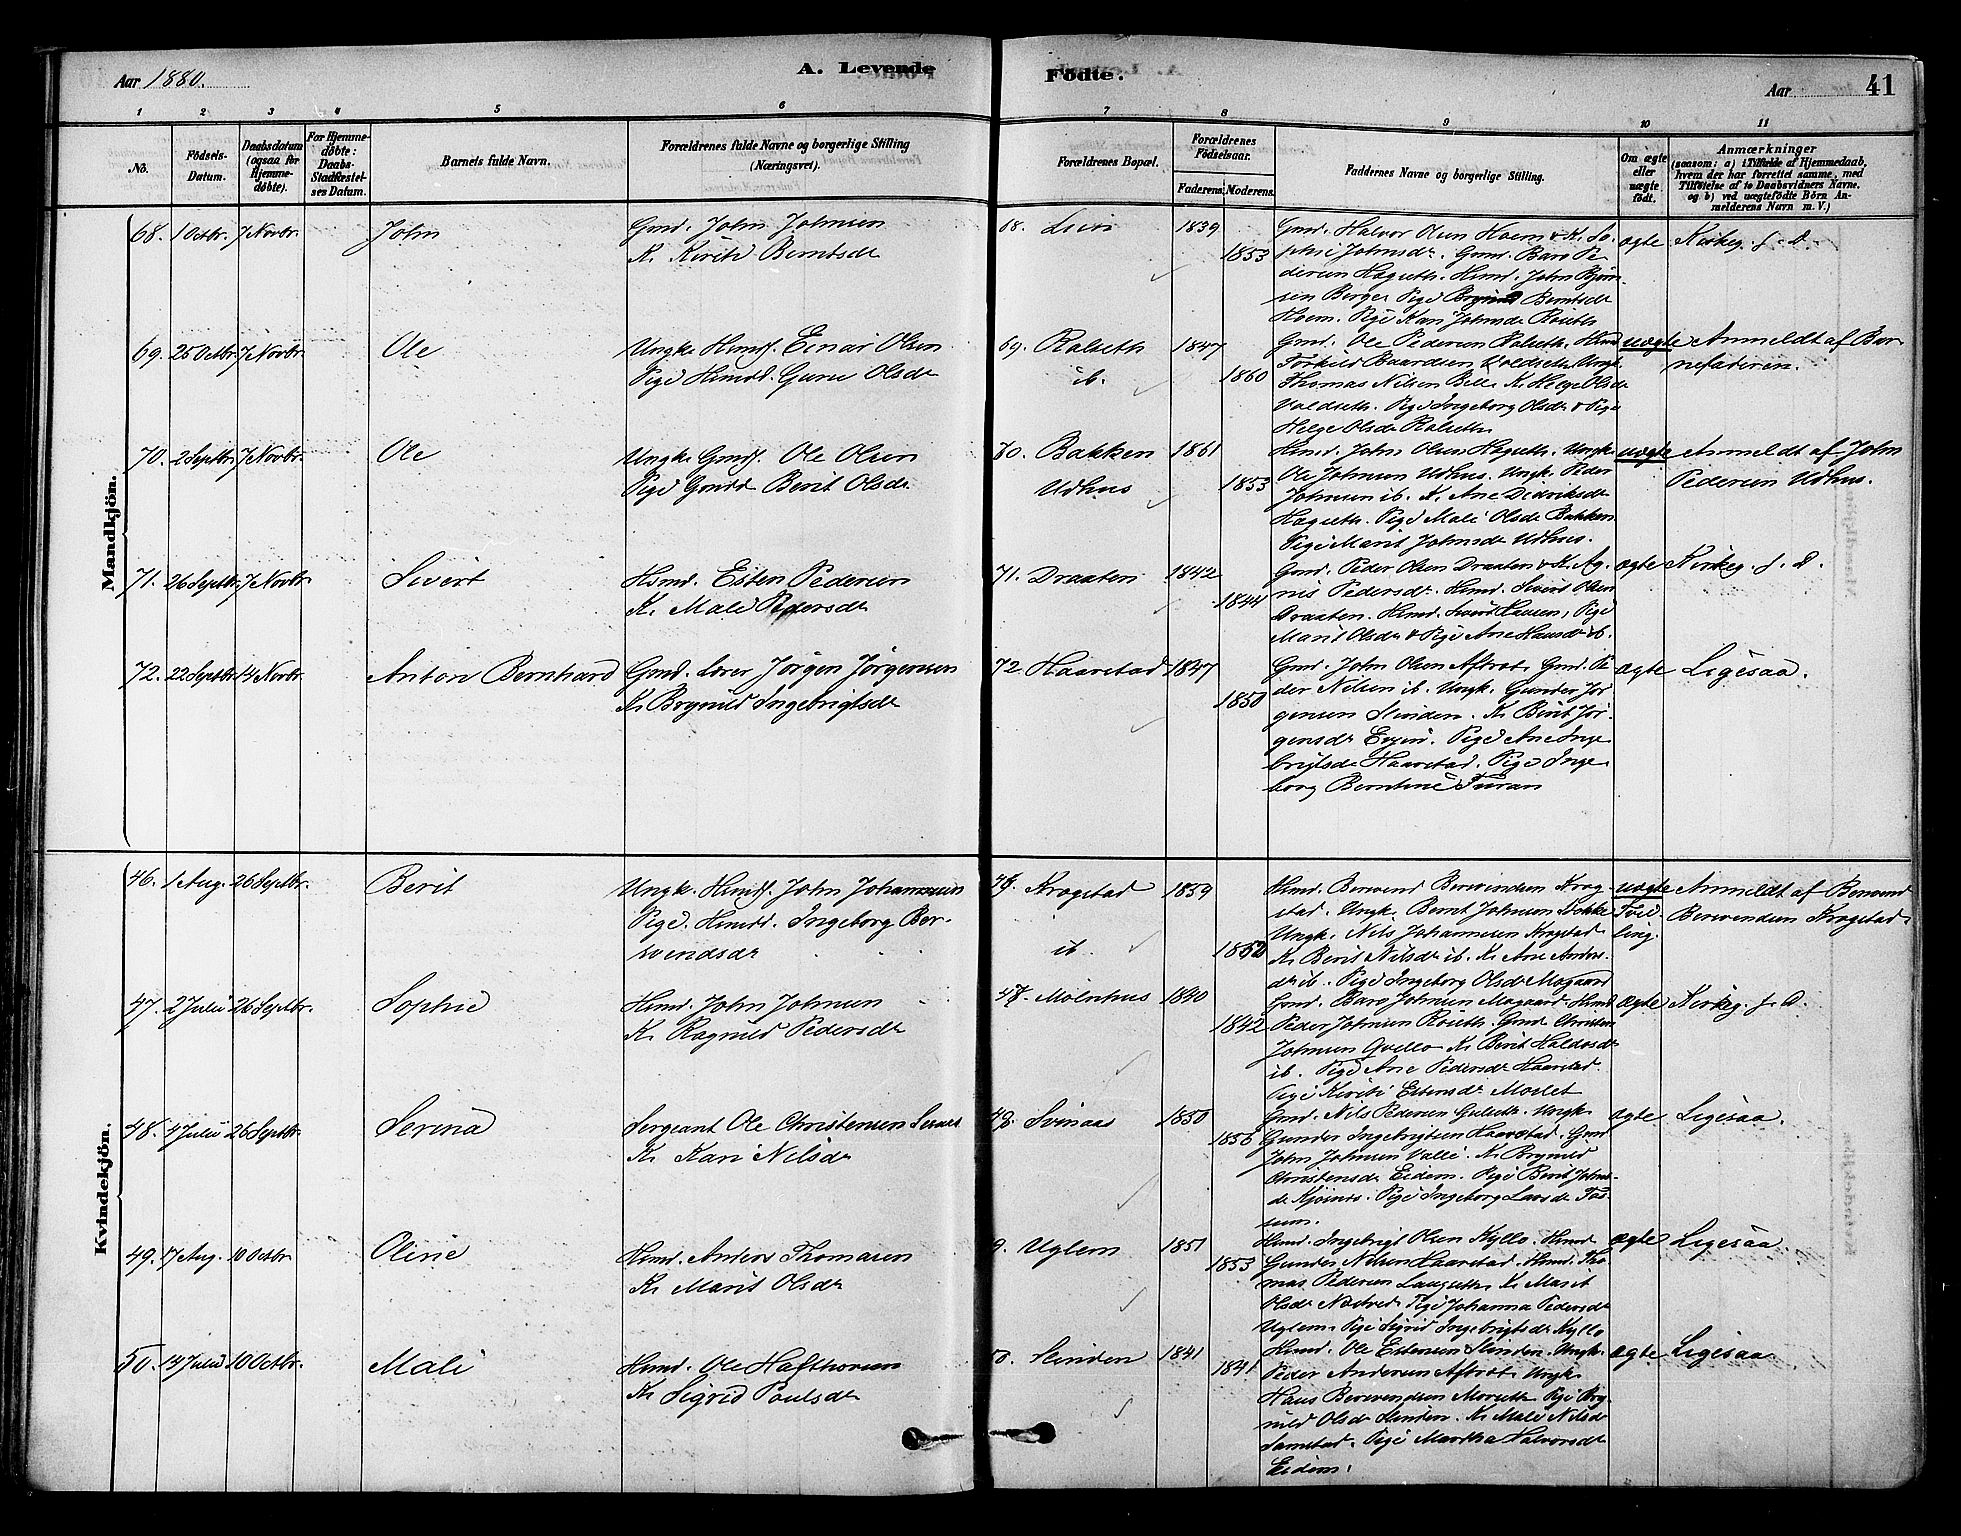 Aar 1880.
A. Levende
Fødte.
Aar
41
1 2 3 4 5 6 7 8 9 10 11
No.
Fødsels-
Datum.
Daabsdatum
(ogsaa for
Hjemme-
døbte).
For Hjemme-
døbte:
Daabs-
Stadfæstel-
ses Datum.
Barnets fulde Navn.
Forældrenes fulde Navne og borgerlige Stilling
(Næringsvei).
Forældrenes Bopæl.
Forældrenes
Fødselsaar.
Faderens. Moderens.
Faddernes Navne og borgerlige Stilling.
Om ægte
eller
uægte
født.
Anmærkninger
(saasom: a) i Tilfælde af Hjemmedaab,
hvem der har forrettet samme, med
Tilføielse af to Daabsvidners Navne.
og b) ved uægtefødte Børn An-
melderens Navn m. V.)
Mandkjön.
68. 1 Octbr. 7 Novbr. John
Gmd. John Johnsen
K. Berntsdr
68. 1839
1853
Gmd. Halvor Olsen Hoem & K. So-
phie Johnsdr. Gmd. Baro Pe-
dersen Hægseth. Hsmd. John
Berge Pige Berntsdr
Hoem. Pige Kari Johnsdr Roseth
ægte Kirkeg. f. D.
69. 25 Octbr. 7 Novbr. Ole
Ungk. Hsmdf. Einar Olsen
Pige Hsmdd. Guru Olsdr
69. Ralseth
ib.
1847
1860
Gmd. Ole Pedersen Ralseth. Hsmd
Torkild Baardsen Valdseth Ungk.
Thomas Nilsen Bell K. Helge Olsdr
Valdseth. Pige Ingeborg Olsdr & Pige
Helge Olsdr Ralseth
uægte Anmeldt af Bar-
nefaderen.
70. 2 Septbr. 7 Novbr. Ole
Ungk. Gmdf. Ole Olsen
Pige Gmdd Berit Olsdr
70. Bakken
Udhus
1861
1853
Hsmd. John Olsen Hægseth. Ungk.
Ole Johnsen Udhus. Ungk. Peder
Johnsen ib. K. Ane Didriksdr
Hægseth. Pige Mali Olsdr Bakken
Pige Marit Johnsdr Udhus.
uægte Anmeldt af John
Pedersen Udhus.
71. 26 Septbr. 7 Novbr. Sivert
Hsmd. Esten Pedersen
K. Mali Pedersdr
71. Draaten
1842
1844
Gmd. Peder Olsen Draaten & K. Ag-
nis Pedersdr. Hsmd. Sivert Olsen
Draaten. Hsmd. Sivert Hansen, Pige
Marit Olsdr & Pige Ane Hansdr ib.
ægte Kirkeg. f. D.
72. 22 Septbr. 14 Novbr. Anton Bernhard
Gmd. Lærer Jørgen Jørgensen
K. Brynild Ingebrigtsdr
72. Haarstad
1847
1850
Gmd. John Olsen Aftret. Gmd. Pe-
der Nilsen ib. Ungk. Gunder Jør-
gensen Slinden. K. Berit Jør-
gensdr Pige Ane Inge-
brigtsdr Haarstad. Pige Inge-
borg Berntine Furan
ægte Ligesaa.
Kvindekjön.
46. 1 Aug. 26 Septbr. Berit
Ungk. Hsmdf. John Johannesen
Pige Hsmdd. Ingeborg Ber-
wendsdr
46. Krogstad
ib.
1859
1852
Hsmd. Berwend Berwendsen Krog-
stad. Ungk. Bernt Johnsen
Ungk. Nils Johannesen Krogstad
K. Berit Nilsdr ib. K. Ane Anders-
dr ib. Pige Ingeborg Olsdr Mogaard
uægte
Tvil-
ling.
Anmeldt af Berwend
Berwendsen Krogstad.
47. 2 Juli 26 Septbr. Sophie
Hsmd. John Johnsen
K. Ragnild Pedersdr
47. Mølnhus
1840
1842
Gmd. Baro Johnsen Mogaard. Hsmd
Peder Johnsen Roseth. Gmd. Christen
Johnsen Qvello K. Berit Haldosdr
ib. Pige Ane Pedersdr Haarstad.
Pige Kirsti Estensdr Moslet
ægte Kirkeg. f. D.
48. 4 Juli 26 Septbr. Serina
Sergeant Ole Christensen
K. Kari Nilsdr
48. Svinaas
1850
1856
Gmd. Nils Pedersen Ungk.
Gunder Ingebrigtsen Haarstad. Gmd
John Johnsen Valli. K. Brynild
Christensdr Eidem. Pige Berit Johns-
dr Kjøsnes. Pige Ingeborg Larsdr Fos-
sum.
ægte Ligesaa.
49. 17 Aug. 10 Octbr. Oline
Hsmd. Anders Thomasen
K. Marit Olsdr
9. Uglem
1851
1853
Hsmd. Ingebrigt Olsen Kyllo. Hsmd
Gunder Nilsen Haarstad. Hsmd. Tho-
mas Pedersen Langseth. K. Marit
Olsdr Pige Johanna Pedersdr
Uglem. Pige Sigrid Ingebrigtsdr Kyllo
ægte Ligesaa.
50. 14 Juli 10 Octbr. Mali
Hsmd. Ole Hafthorsen
K. Sigrid Poulsdr
50. Slinden
1841
1841
Hsmd. Ole Estensen Slinden. Ungk.
Peder Andersen Aftret. Ungk.
Hans Berwendsen Morseth. Pige Bryn-
nild Olsdr Slinden. K. Mali Nilsdr
Samstad. Pige Martha Halvorsdr
Eidem.
ægte Ligesaa.